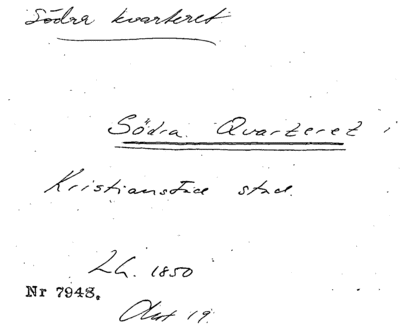 Södra kvarteret
Södra Quarteret i
Kristianstad stad.
Lh. 1850
Nr 7948.
Akt 19.